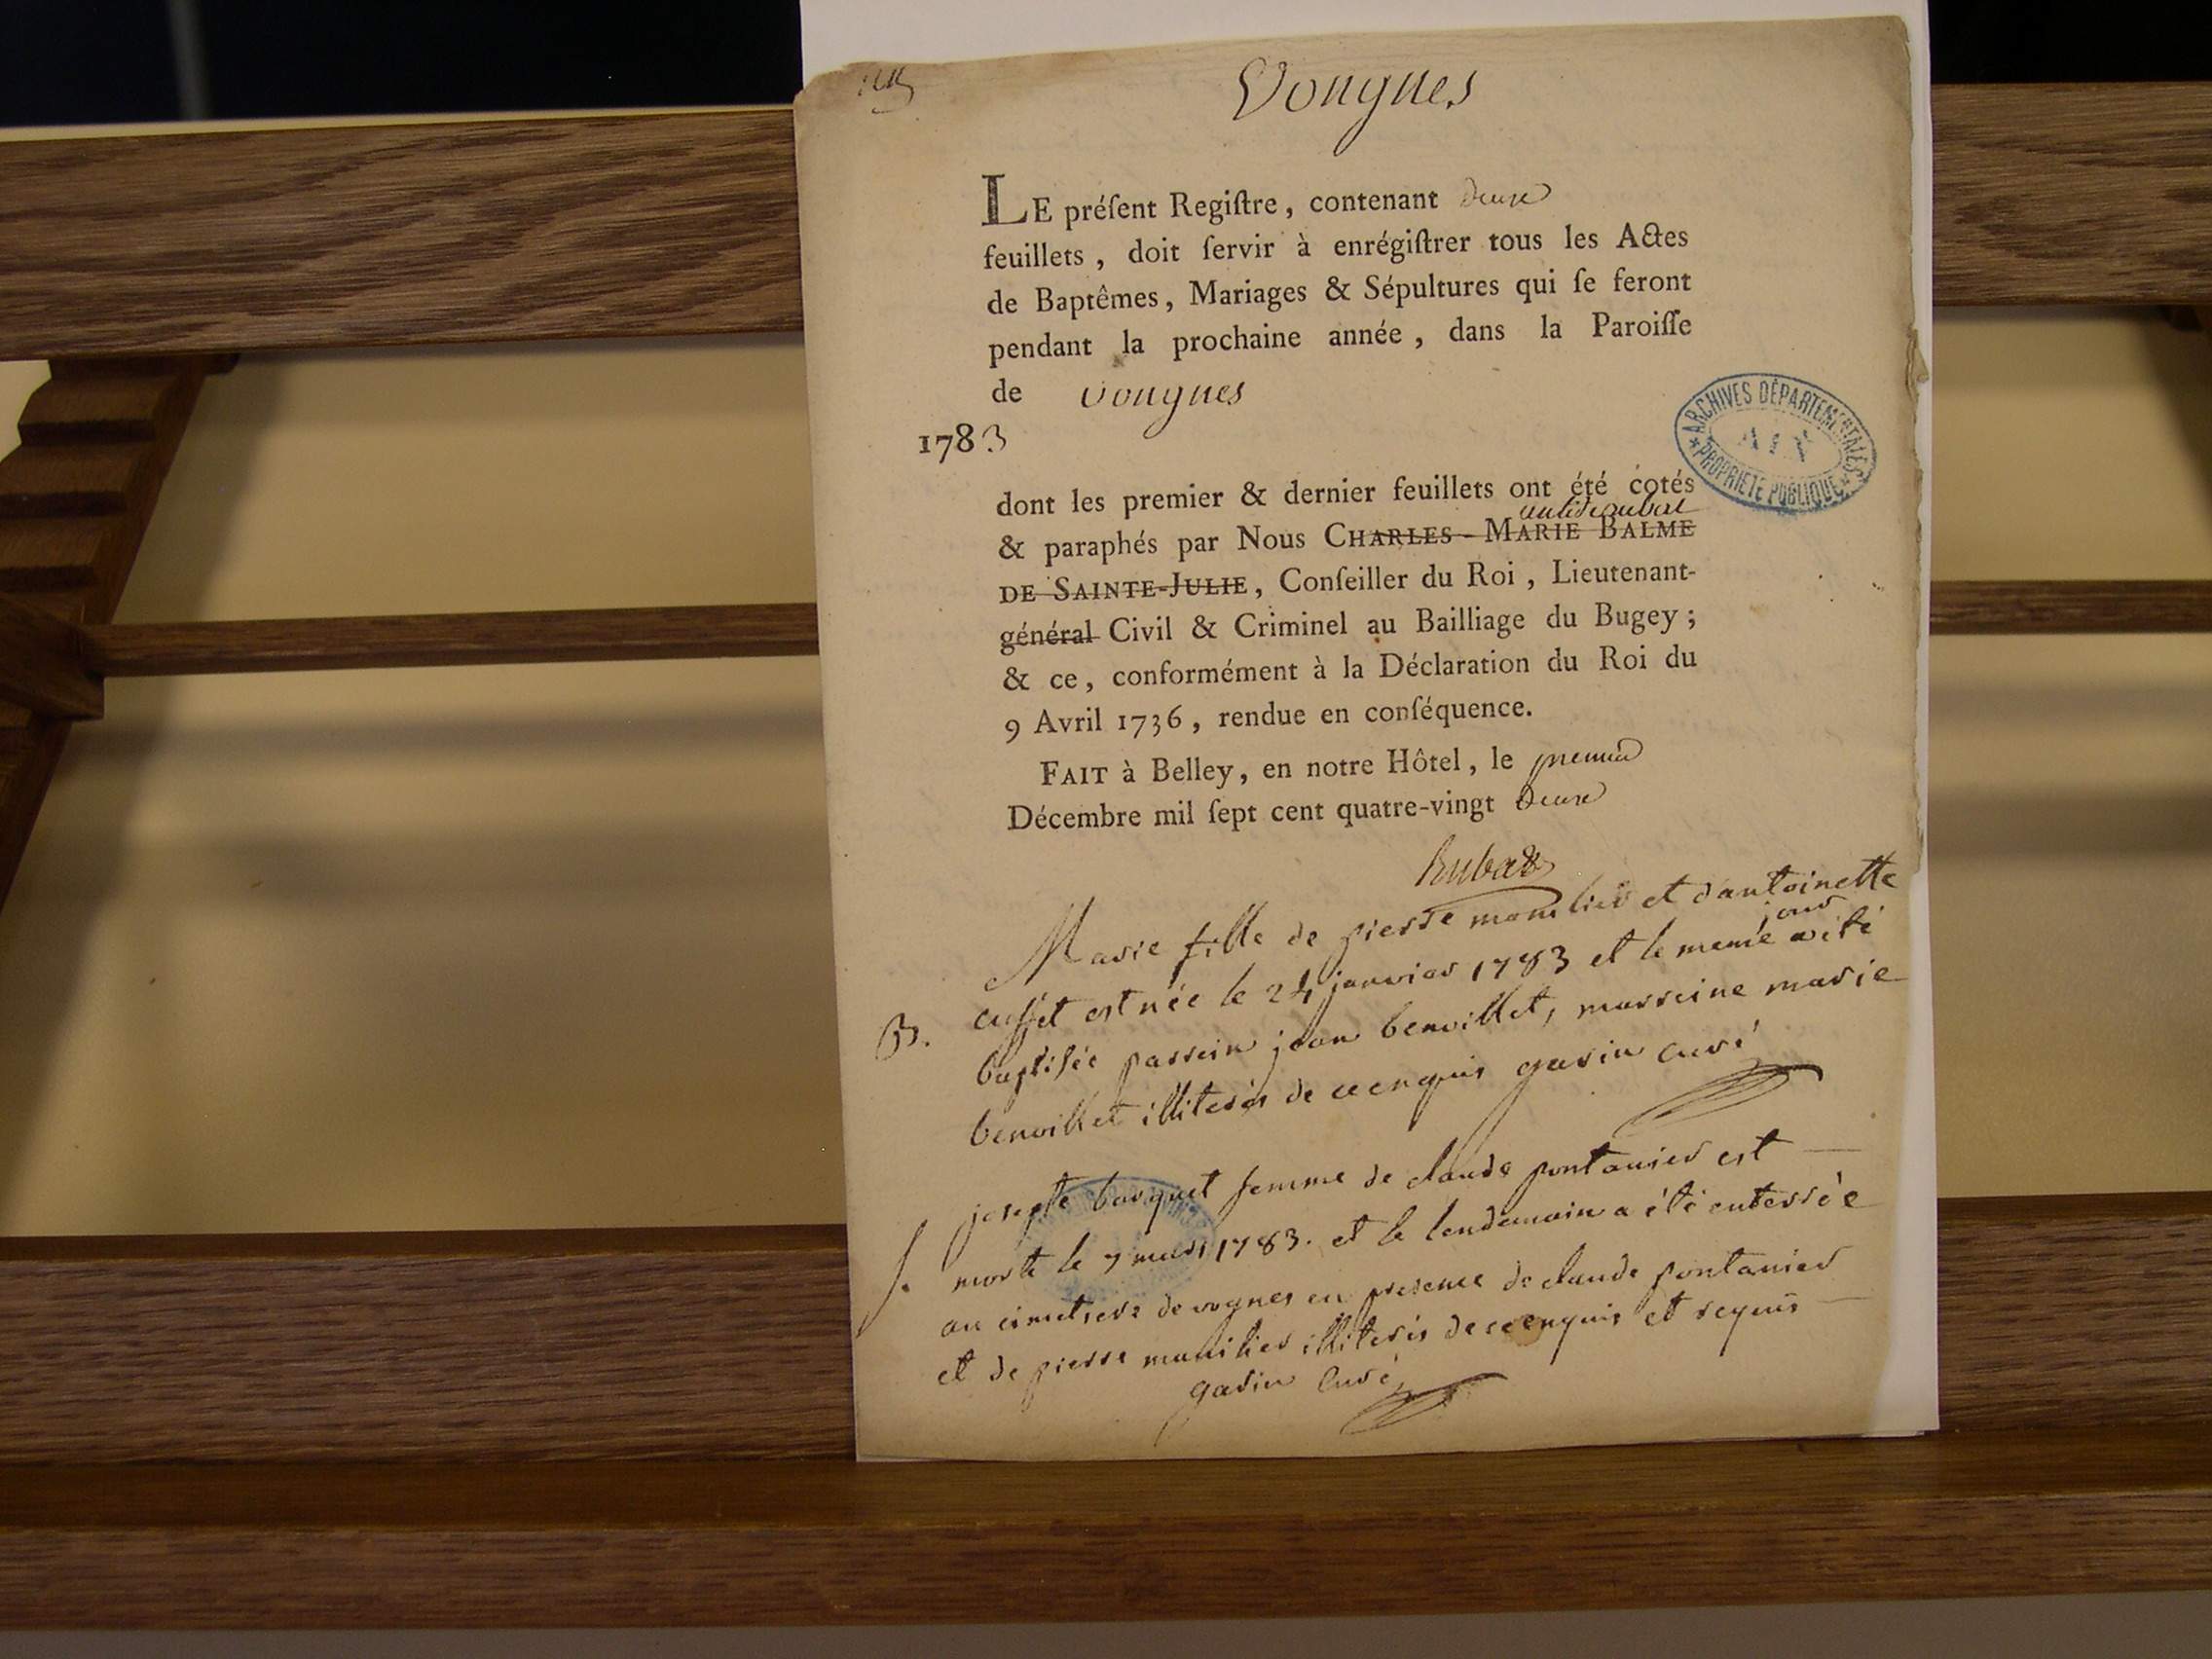 Vougnes
LE préſent Regiſtre, contenant deux
feuillets, doit ſervir à enrégiſtrer tous les Actes
de Baptêmes, Mariages & Sépultures qui ſe feront
pendant la prochaine année, dans la Paroiſſe
de vougnes
1783
ARCHIVES DÉPARTEMENTALES
AIN
PROPRIETE PUBLIQUE
dont les premier & dernier feuillets ont été cotés
& paraphés par Nous CHARLES-MARIE BALME
DE SAINTE-JULIE, Conſeiller du Roi, Lieutenant-
général Civil & Criminel au Bailliage du Bugey;
& ce, conformément à la Déclaration du Roi du
9 Avril 1736, rendue en conſéquence.
FAIT à Belley, en notre Hôtel, le premier
Décembre mil ſept cent quatre-vingt deux
Rubat
Marie fille de pierre et d'antoinette
cusset est née le 24 janvier 1783 et le meme jour a été
B. baptisée parrein jean benoillet, marreine marie
benoillet illiterés de ce enquis gavin curé
josephte borquet femme de claude pontanier est
S. morte le 7 mars 1783. et le lendemain a été enterrée
au cimetiere de vognes en presence de claude pontanier
et de pierre illiterés de ce enquis et requis
gavin curé